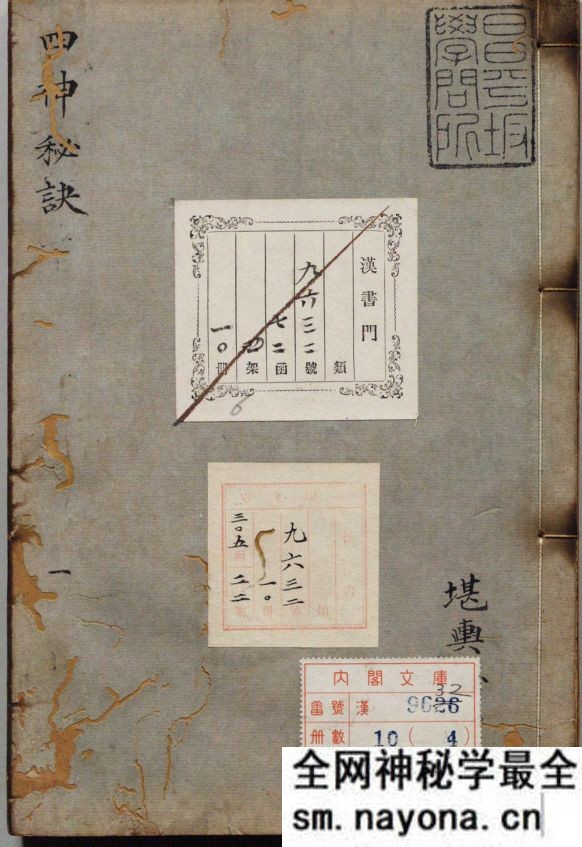 昌平坂
學問所
四神秘訣
漢書門 類
九六三二號
七二函
架
一〇冊
6
漢書 類
九六三二號
一〇冊
三〇五函
二二架
一
堪輿
內閣文庫
番號 漢 9626
32
冊數 10 ( 4 )
全网神秘学最全
sm.nayona.cn